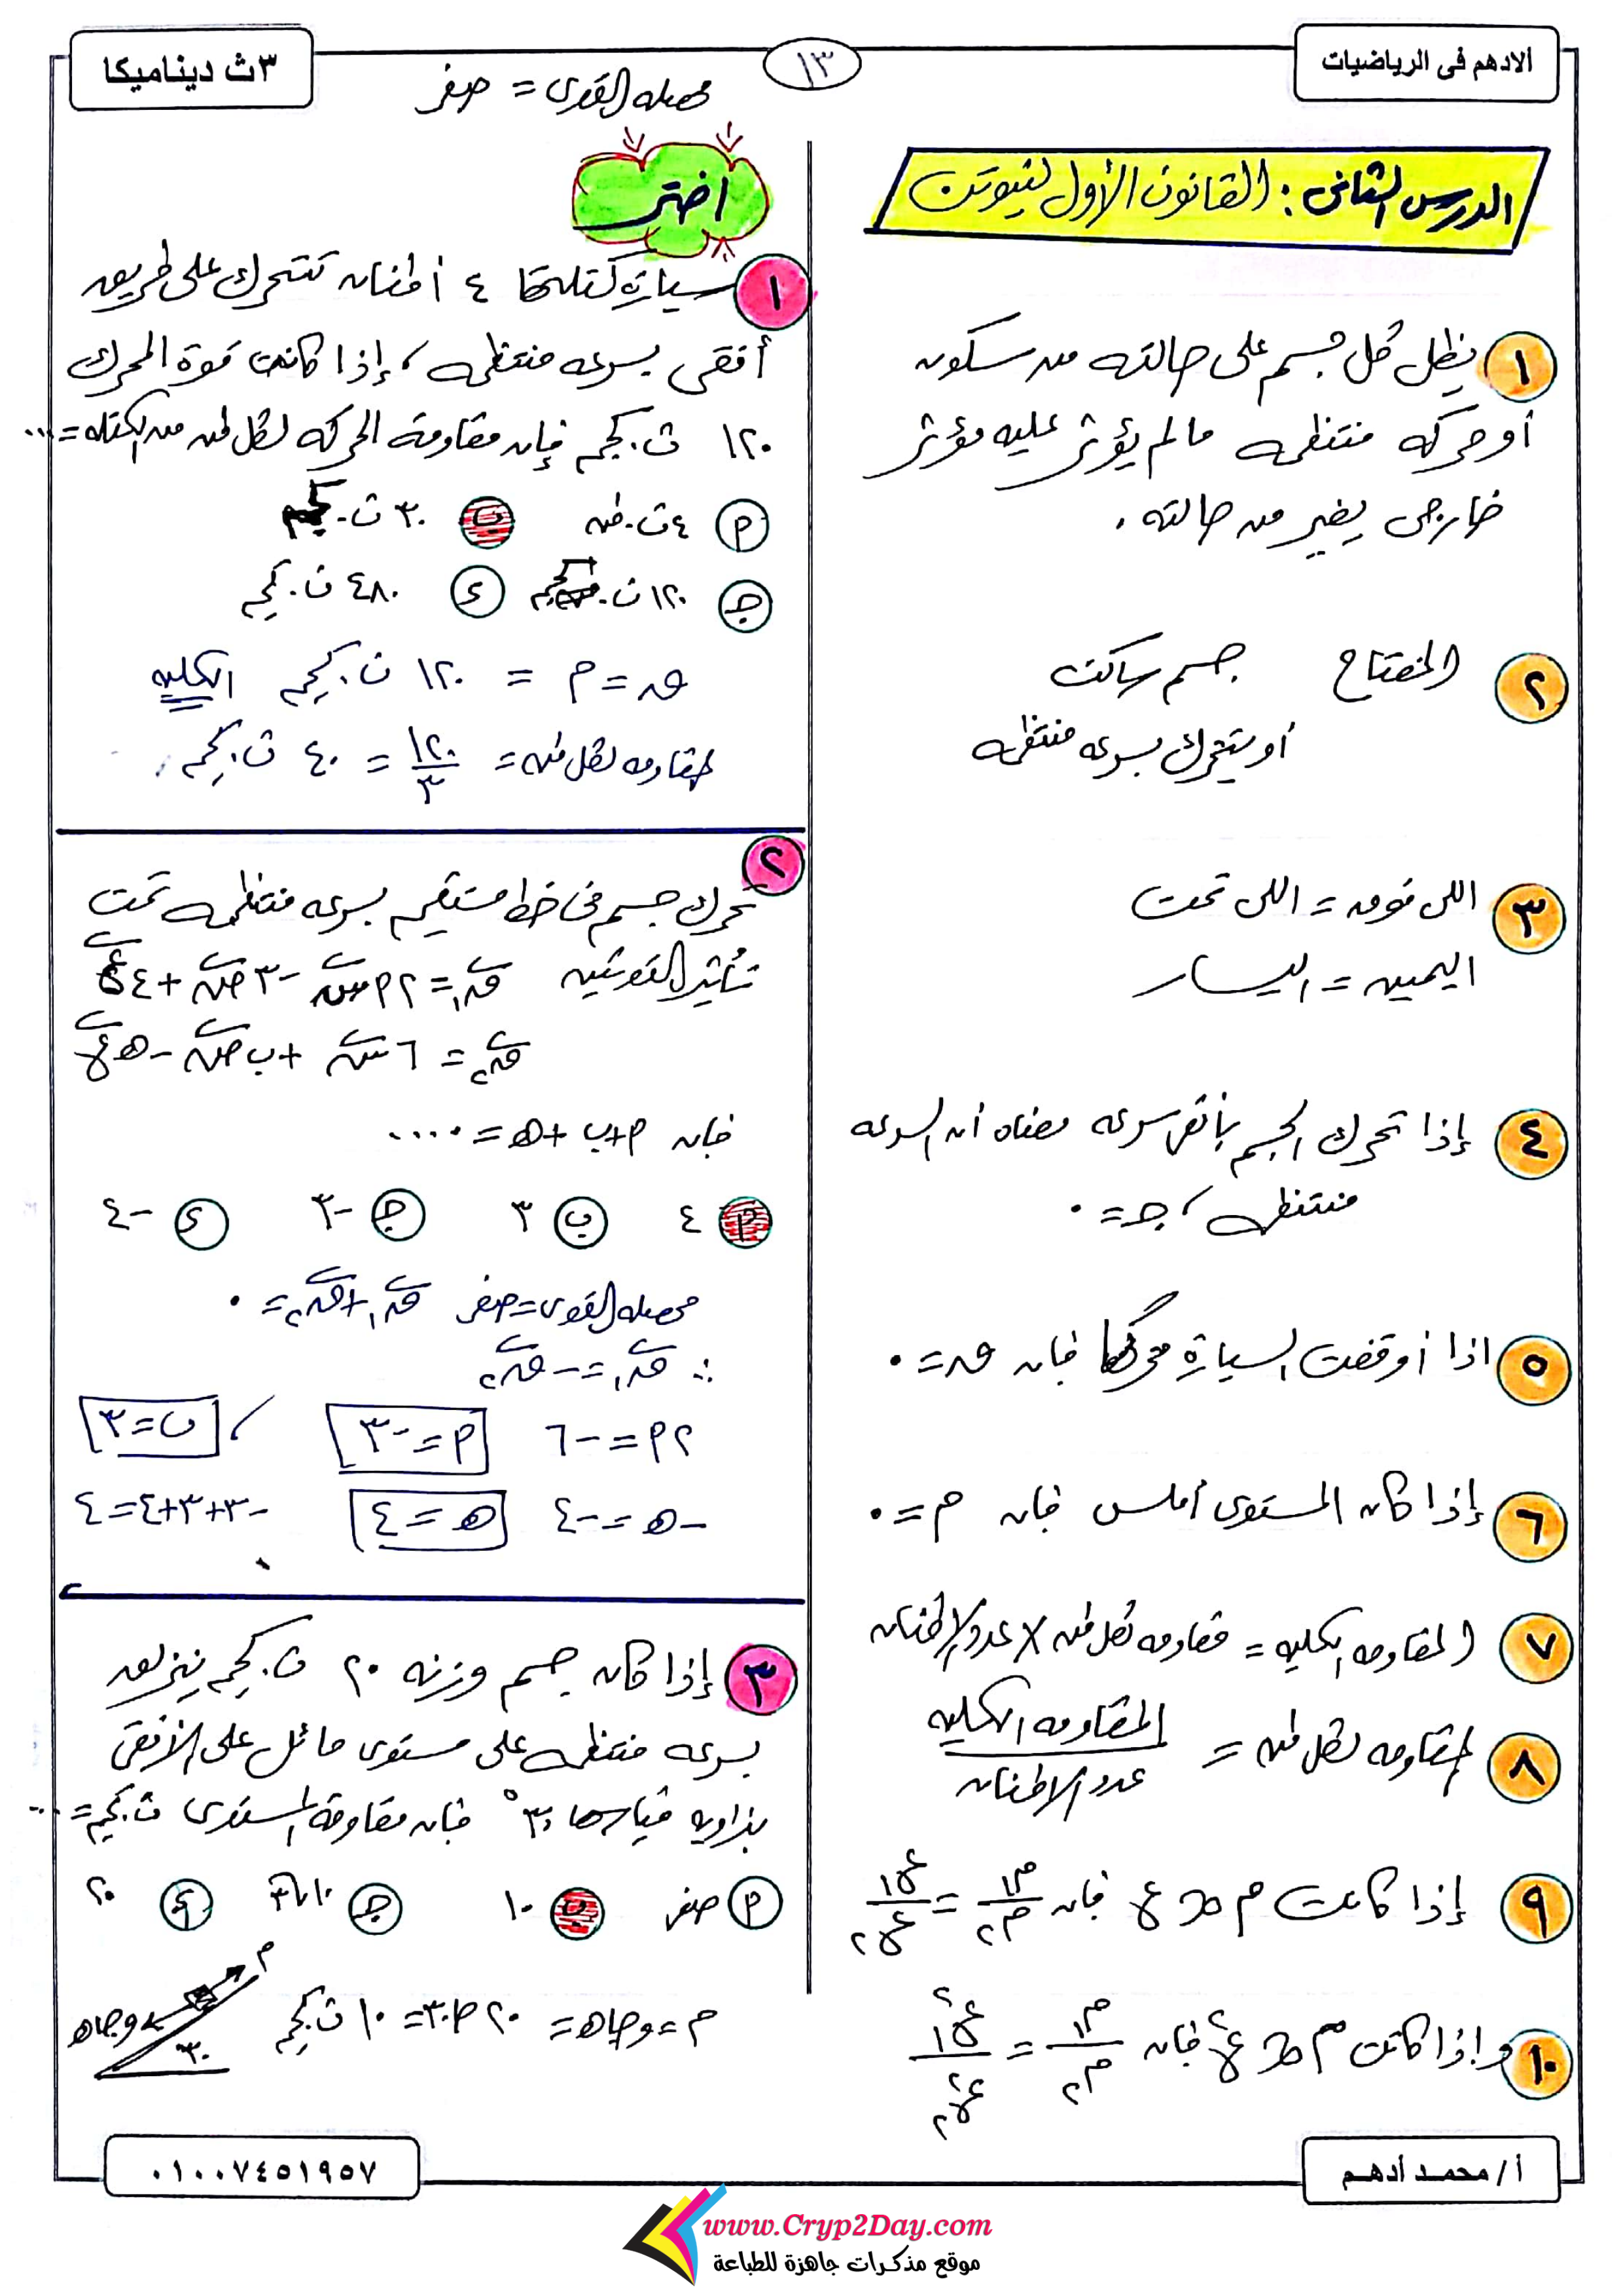 الادهم فى الرياضيات
١٣
٣ث ديناميكا
محصله القوى = صفر
الدرس الثانى : القانون الأول لنيوتن
١ يظل كل جسم على حالته من سكون
أو حركه منتظمه مالم يؤثر عليه مؤثر
خارجى يغير من حالته .
٢ المفتاح جسم ساكن
أو يتحرك بسرعه منتظمه
٣ اللى فوق = اللى تحت
اليمين = اليسار
٤ إذا تحرك الجسم بأقصى سرعه معناه أن السرعه
منتظمه ، جـ = ٠
٥ اذا أوقفت السيارة محركها فإن ق = ٠
٦ إذا كان المستوى أملس فإن م = ٠
٧ المقاومه الكليه = مقاومه لكل طن × عدد الاطنان
٨ المقاومه لكل طن = المقاومه الكليه / عدد الاطنان
٩ إذا كانت م ∝ ع فإن م١/م٢ = ع١/ع٢
١٠ وإذا كانت م ∝ ع² فإن م١/م٢ = ع١²/ع٢²
اختر
١ سيارة كتلتها ٤ أطنان تتحرك على طريق
أفقى بسرعه منتظمه ، إذا كانت قوة المحرك
١٢٠ ث.كجم فإن مقاومة الحركه لكل طن من الكتله = ...
أ ٤ ث.طن ب ٣٠ ث.كجم
جـ ١٢٠ ث.كجم د ٤٨٠ ث.كجم
ق = م = ١٢٠ ث.كجم الكليه
المقاومه لكل طن = ١٢٠/٣ = ٤٠ ث.كجم .
٢ تحرك جسم فى خط مستقيم بسرعه منتظمه تحت
تأثير القوتين ق١ = ٢أ س - ٣ ص + ٤ ع
ق٢ = ٦ س + ب ص - هـ ع
فإن أ + ب + هـ = ....
أ ٤ ب ٣ جـ -٣ د -٤
محصله القوى = صفر ق١ + ق٢ = ٠
∴ ق١ = - ق٢
٢أ = -٦ أ = -٣ ، ب = ٣
-هـ = -٤ هـ = ٤ -٣+٣+٤ = ٤
٣ إذا كان جسم وزنه ٢٠ ث.كجم ينزلق
بسرعه منتظمه على مستوى مائل على الأفقى
بزاويه قياسها ٣٠° فإن مقاومة المستوى ث.كجم = ...
أ صفر ب ١٠ جـ ١٠√٣ د ٢٠
م = و جاهـ = ٢٠ جا ٣٠ = ١٠ ث.كجم
م
و جاهـ
٣٠
أ / محمـد أدهـم
٠١٠٠٧٤٥١٩٥٧
www.Cryp2Day.com
موقع مذكرات جاهزة للطباعة